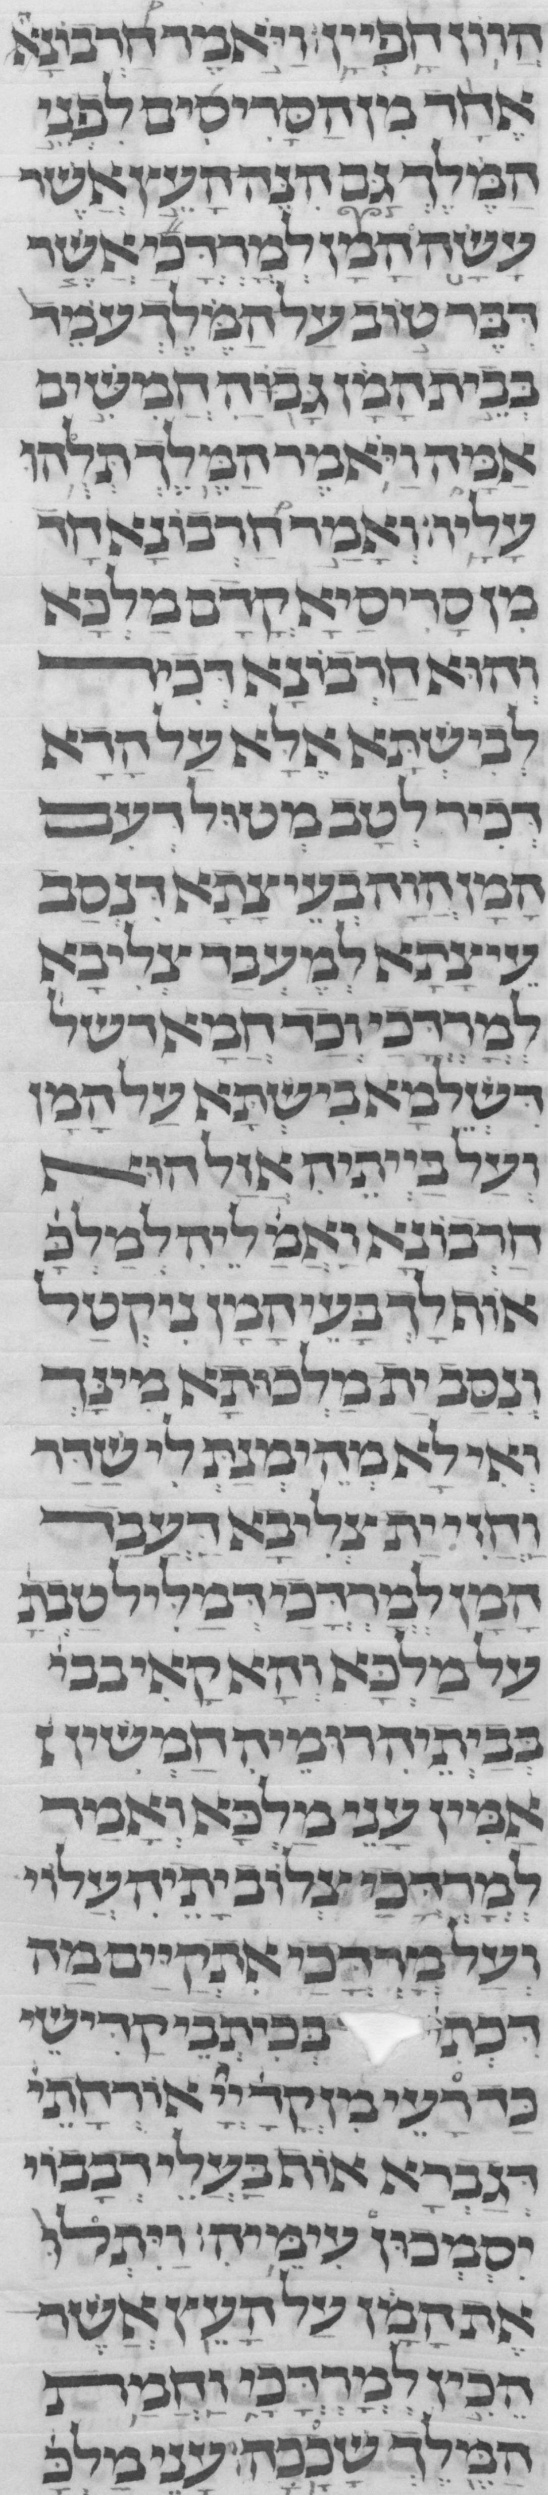 הֲווֹן חָפְיָין׃ וַיֹּאמֶר חַרְבוֹנָא
אֶחָד מִן הַסָּרִיסִים לִפְנֵי
הַמֶּלֶךְ גַּם הִנֵּה הָעֵץ אֲשֶׁר
עָשָׂה הָמָן לְמָרְדֳּכַי אֲשֶׁר
דִּבֶּר טוֹב עַל הַמֶּלֶךְ עֹמֵד
בְּבֵית הָמָן גָּבוֹהַּ חֲמִשִּׁים
אַמָּה וַיֹּאמֶר הַמֶּלֶךְ תְּלֻהוּ
עָלָיו׃ וַאֲמַר חַרְבוֹנָא חַד
מִן סָרִיסַיָא קֳדָם מַלְכָּא
וְהוּא חַרְבוֹנָא דְּכִיר
לְבִישְׁתָּא אֶלָּא עַל הָדָא
דְּכִיר לְטָב מְטוּל דְּעִם
הָמָן הֲוָה בְּעֵיצָתָא דִּנְסַב
עֵיצָתָא לְמֶעְבַּד צְלִיבָא
לְמָרְדֳּכַי וְכַד חֲמָא דשל
דִּשְׁלֵמָא בִישְׁתָּא עַל הָמָן
וְעַל בַּייתֵיהּ אֲזַל הוּא
חַרְבוֹנָא וַאֲמַ׳ לֵיהּ לְמַלְכָּ׳
אוֹת לָךְ בָּעֵי הָמָן נִיקְטַל
וְנִסַּב יַת מַלְכוּתָא מִינָּךְ
וְאִי לָא מְהֵימְנַתְּ לִי שַׁדַּר
וַחֲזֵי יַת צְלִיבָא דַּעֲבַד
הָמָן לְמָרְדֳּכַי דְּמַלִּיל טַבְתָּ
עַל מַלְכָּא וְהָא קָאִי בבי
בְּבַיְתֵיהּ רוּמֵיהּ חַמְשִׁין ן
אַמִּין עָנֵי מַלְכָּא וְאָמַר
לְמָרְדֳּכַי צְלוֹב יָתֵיהּ עֲלוֹי
וְעַל מָרְדֳּכַי אִתְקַיים מַה
דִּכְתִי׳ בְּכִיתְבֵי קַדִּישֵׁי
כַּד רָעֵי מִן קֳדָ׳ יְיָ׳ אוֹרְחָתֵי׳
דְּגַבְרָא אוֹת בַּעֲלֵי דְבָבוֹי
יִסְמְכוּן עִימֵּיהּ׃ וַיִּתְלוּ
אֶת הָמָן עַל הָעֵץ אֲשֶׁר
הֵכִין לְמָרְדֳּכָי וַחֲמַת
הַמֶּלֶךְ שָׁכָכָה׃ עָנֵי מַלְכָּ׳